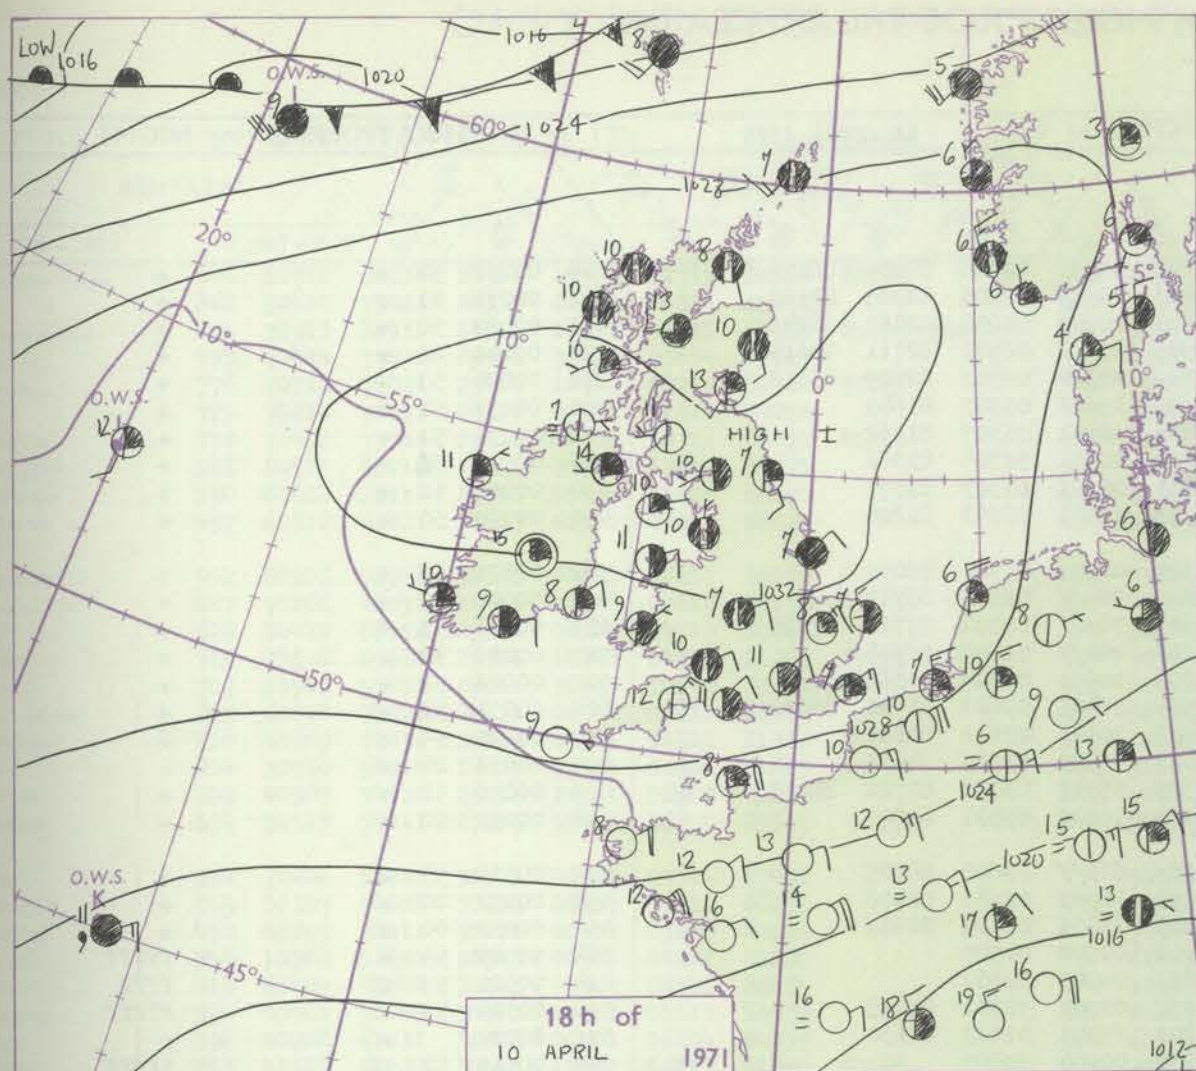 LOW
1016
1016
8
5
O.W.S.
I
1020
9
60°
1024
3
7
1028
6
20°
6
6
10
8
6
5°
10
13
10
5
10°
10°
10
4
13
0°
10°
55°
O.W.S.
J
12
7
11
HIGH I
11
14
10
7
10
10
15
11
7
6
10
9
8
9
7
1032
8
7
6
8
6
10
11
7
10
50°
12
11
10
9
9
1028
10
6
13
8
1024
8
12
13
12
15
15
1020
O.W.S.
K
11
9
12
16
14
13
17
13
1016
45°
16
18
19
16
18 h of
10 APRIL 1971
1012